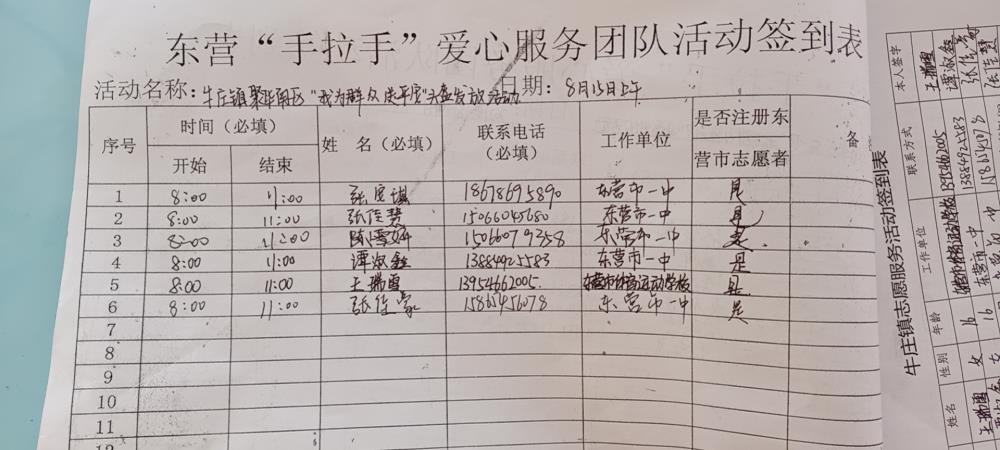 东营“手拉手”爱心服务团队活动签到表
活动名称：牛庄镇 “我为群众 发放活动 日期：8月15日上午
序号 时间（必填） 姓 名（必填） 联系电话（必填） 工作单位 是否注册东营市志愿者 备
开始 结束
1 8:00 11:00 18678695890 东营市一中 是
2 8:00 11:00 张佳慧 15066045680 东营市一中 是
3 8:00 11:00 15066079358 东营市一中 是
4 8:00 11:00 谭淑鑫 13884925583 东营市一中 是
5 8:00 11:00 王瑞雪 13954662005 东营市体育运动学校 是
6 8:00 11:00 张佳豪 东营市一中 是
7
8
9
10
11
12
牛庄镇志愿服务活动签到表
姓名 性别 年龄 工作单位 联系方式 本人签字
王瑞雪 女 16 东营市体育运动学校 13954662005 王瑞雪
16 东营市一中 13884925583 谭淑鑫